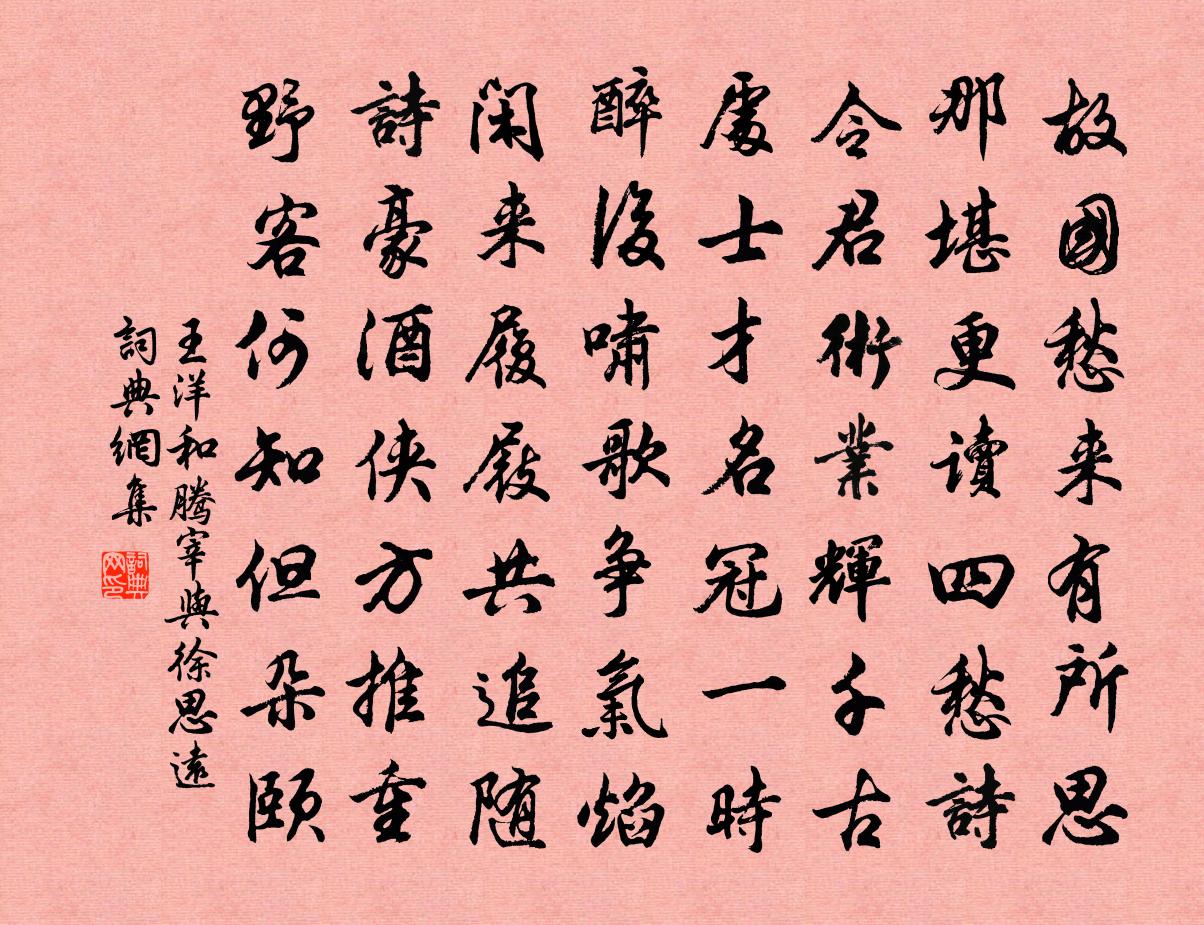 故國愁来有所思
那堪更讀四愁詩
令君術業輝千古
處士才名冠一時
醉後嘯歌争氣焰
閑来履屐共追随
詩豪酒俠方推重
野客何知但朵頤
王洋和騰宰與徐思遠
詞典網集
詞典网印